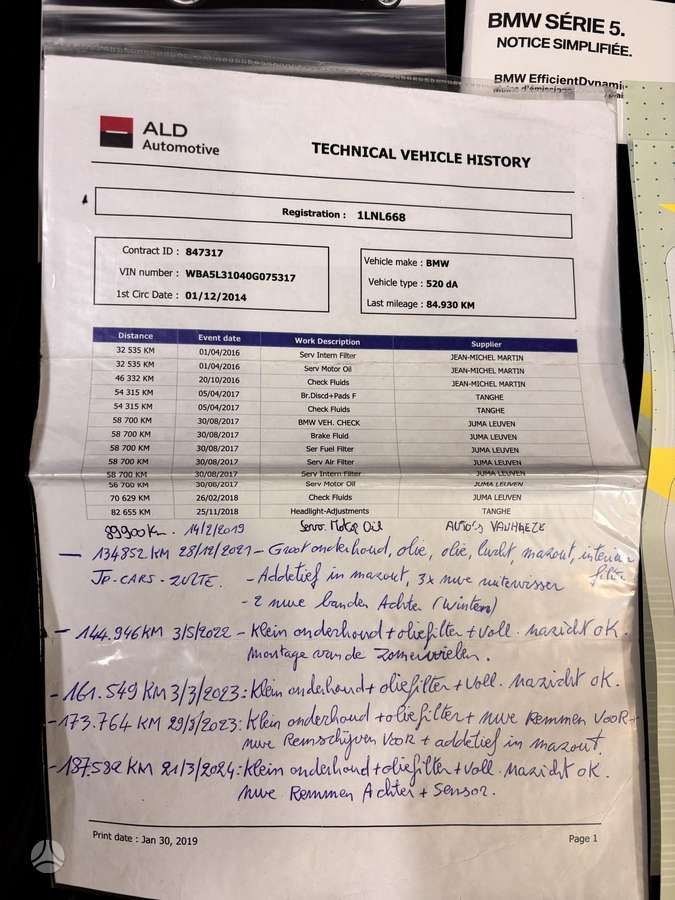 BMW SÉRIE 5.
NOTICE SIMPLIFIÉE.
BMW EfficientDynami
ALD
Automotive
TECHNICAL VEHICLE HISTORY
Registration : 1LNL668
Contract ID : 847317
VIN number : WBA5L31040G075317
1st Circ Date : 01/12/2014
Vehicle make : BMW
Vehicle type : 520 dA
Last mileage : 84.930 KM
Distance Event date Work Description Supplier
32 535 KM 01/04/2016 Serv Intern Filter JEAN-MICHEL MARTIN
32 535 KM 01/04/2016 Serv Motor Oil JEAN-MICHEL MARTIN
46 332 KM 20/10/2016 Check Fluids JEAN-MICHEL MARTIN
54 315 KM 05/04/2017 Br.Discd+Pads F TANGHE
54 315 KM 05/04/2017 Check Fluids TANGHE
58 700 KM 30/08/2017 BMW VEH. CHECK JUMA LEUVEN
58 700 KM 30/08/2017 Brake Fluid JUMA LEUVEN
58 700 KM 30/08/2017 Ser Fuel Filter JUMA LEUVEN
58 700 KM 30/08/2017 Serv Air Filter JUMA LEUVEN
58 700 KM 30/08/2017 Serv Intern Filter JUMA LEUVEN
58 700 KM 30/08/2017 Serv Motor Oil JUMA LEUVEN
70 629 KM 26/02/2018 Check Fluids JUMA LEUVEN
82 655 KM 25/11/2018 Headlight-Adjustments TANGHE
89900 Km. 14/2/2019 Serv. Motor Oil AUTO'S VANHAEZE
— 134852 KM 28/12/2021 - Groot onderhoud, olie, olie, lucht, mazout, interieur
JP-CARS-ZULTE. - Addetief in mazout, 3x nwe ruitewisser filter
- 2 nwe banden Achter (winters)
- 144.946 KM 3/5/2022 - Klein onderhoud + oliefilter + voll. nazicht OK.
montage van de zomerwielen.
- 161.549 KM 3/3/2023: Klein onderhoud + oliefilter + voll. nazicht OK.
- 173.764 KM 29/8/2023: Klein onderhoud + oliefilter + nwe Remmen VOOR +
nwe Remschijven VOOR + addetief in mazout.
- 187.582 KM 21/3/2024: Klein onderhoud + oliefilter + voll. nazicht OK.
nwe Remmen Achter + Sensor.
Print date : Jan 30, 2019 Page 1